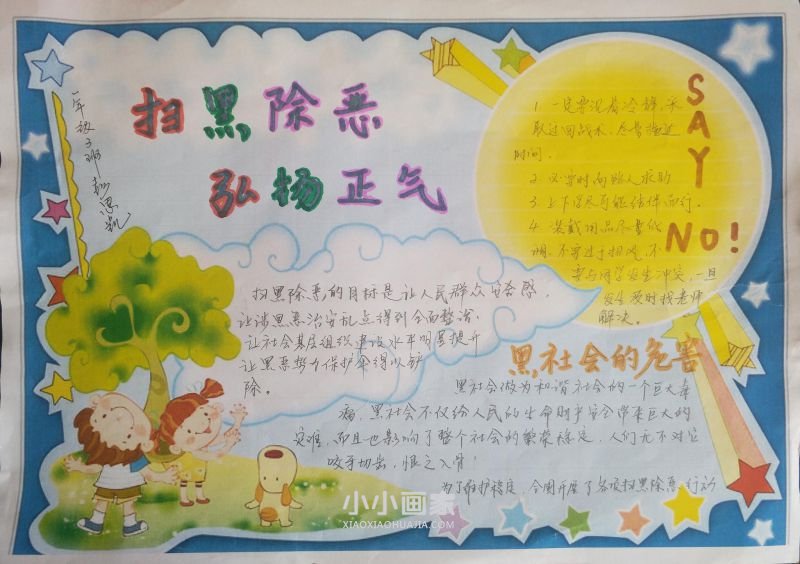 扫黑除恶
弘扬正气
一年级3班
SAY
NO!
1. 一定要沉着冷静,采
取迂回战术,尽量拖延
时间.
2. 必要时向路人求助
3. 上下学尽可能结伴而行.
4. 装戴用品尽量低
调,不要过于招风,不
要与同学发生冲突,一旦
发生及时找老师
解决.
扫黑除恶的目标是让人民群众安全感,
让涉黑恶治安乱点得到全面整治,
让社会基层组织建设水平明显提升
让黑恶势力保护伞得以铲
除。
黑社会的危害
黑社会做为和谐社会的一个巨大毒
瘤,黑社会不仅给人民的生命财产安全带来巨大的
灾难,而且也影响了整个社会的繁荣稳定,人们无不对它
咬牙切齿,恨之入骨!
为了维护稳定,全国开展了各项扫黑除恶行动
小小画家
XIAOXIAOHUAJIA.COM